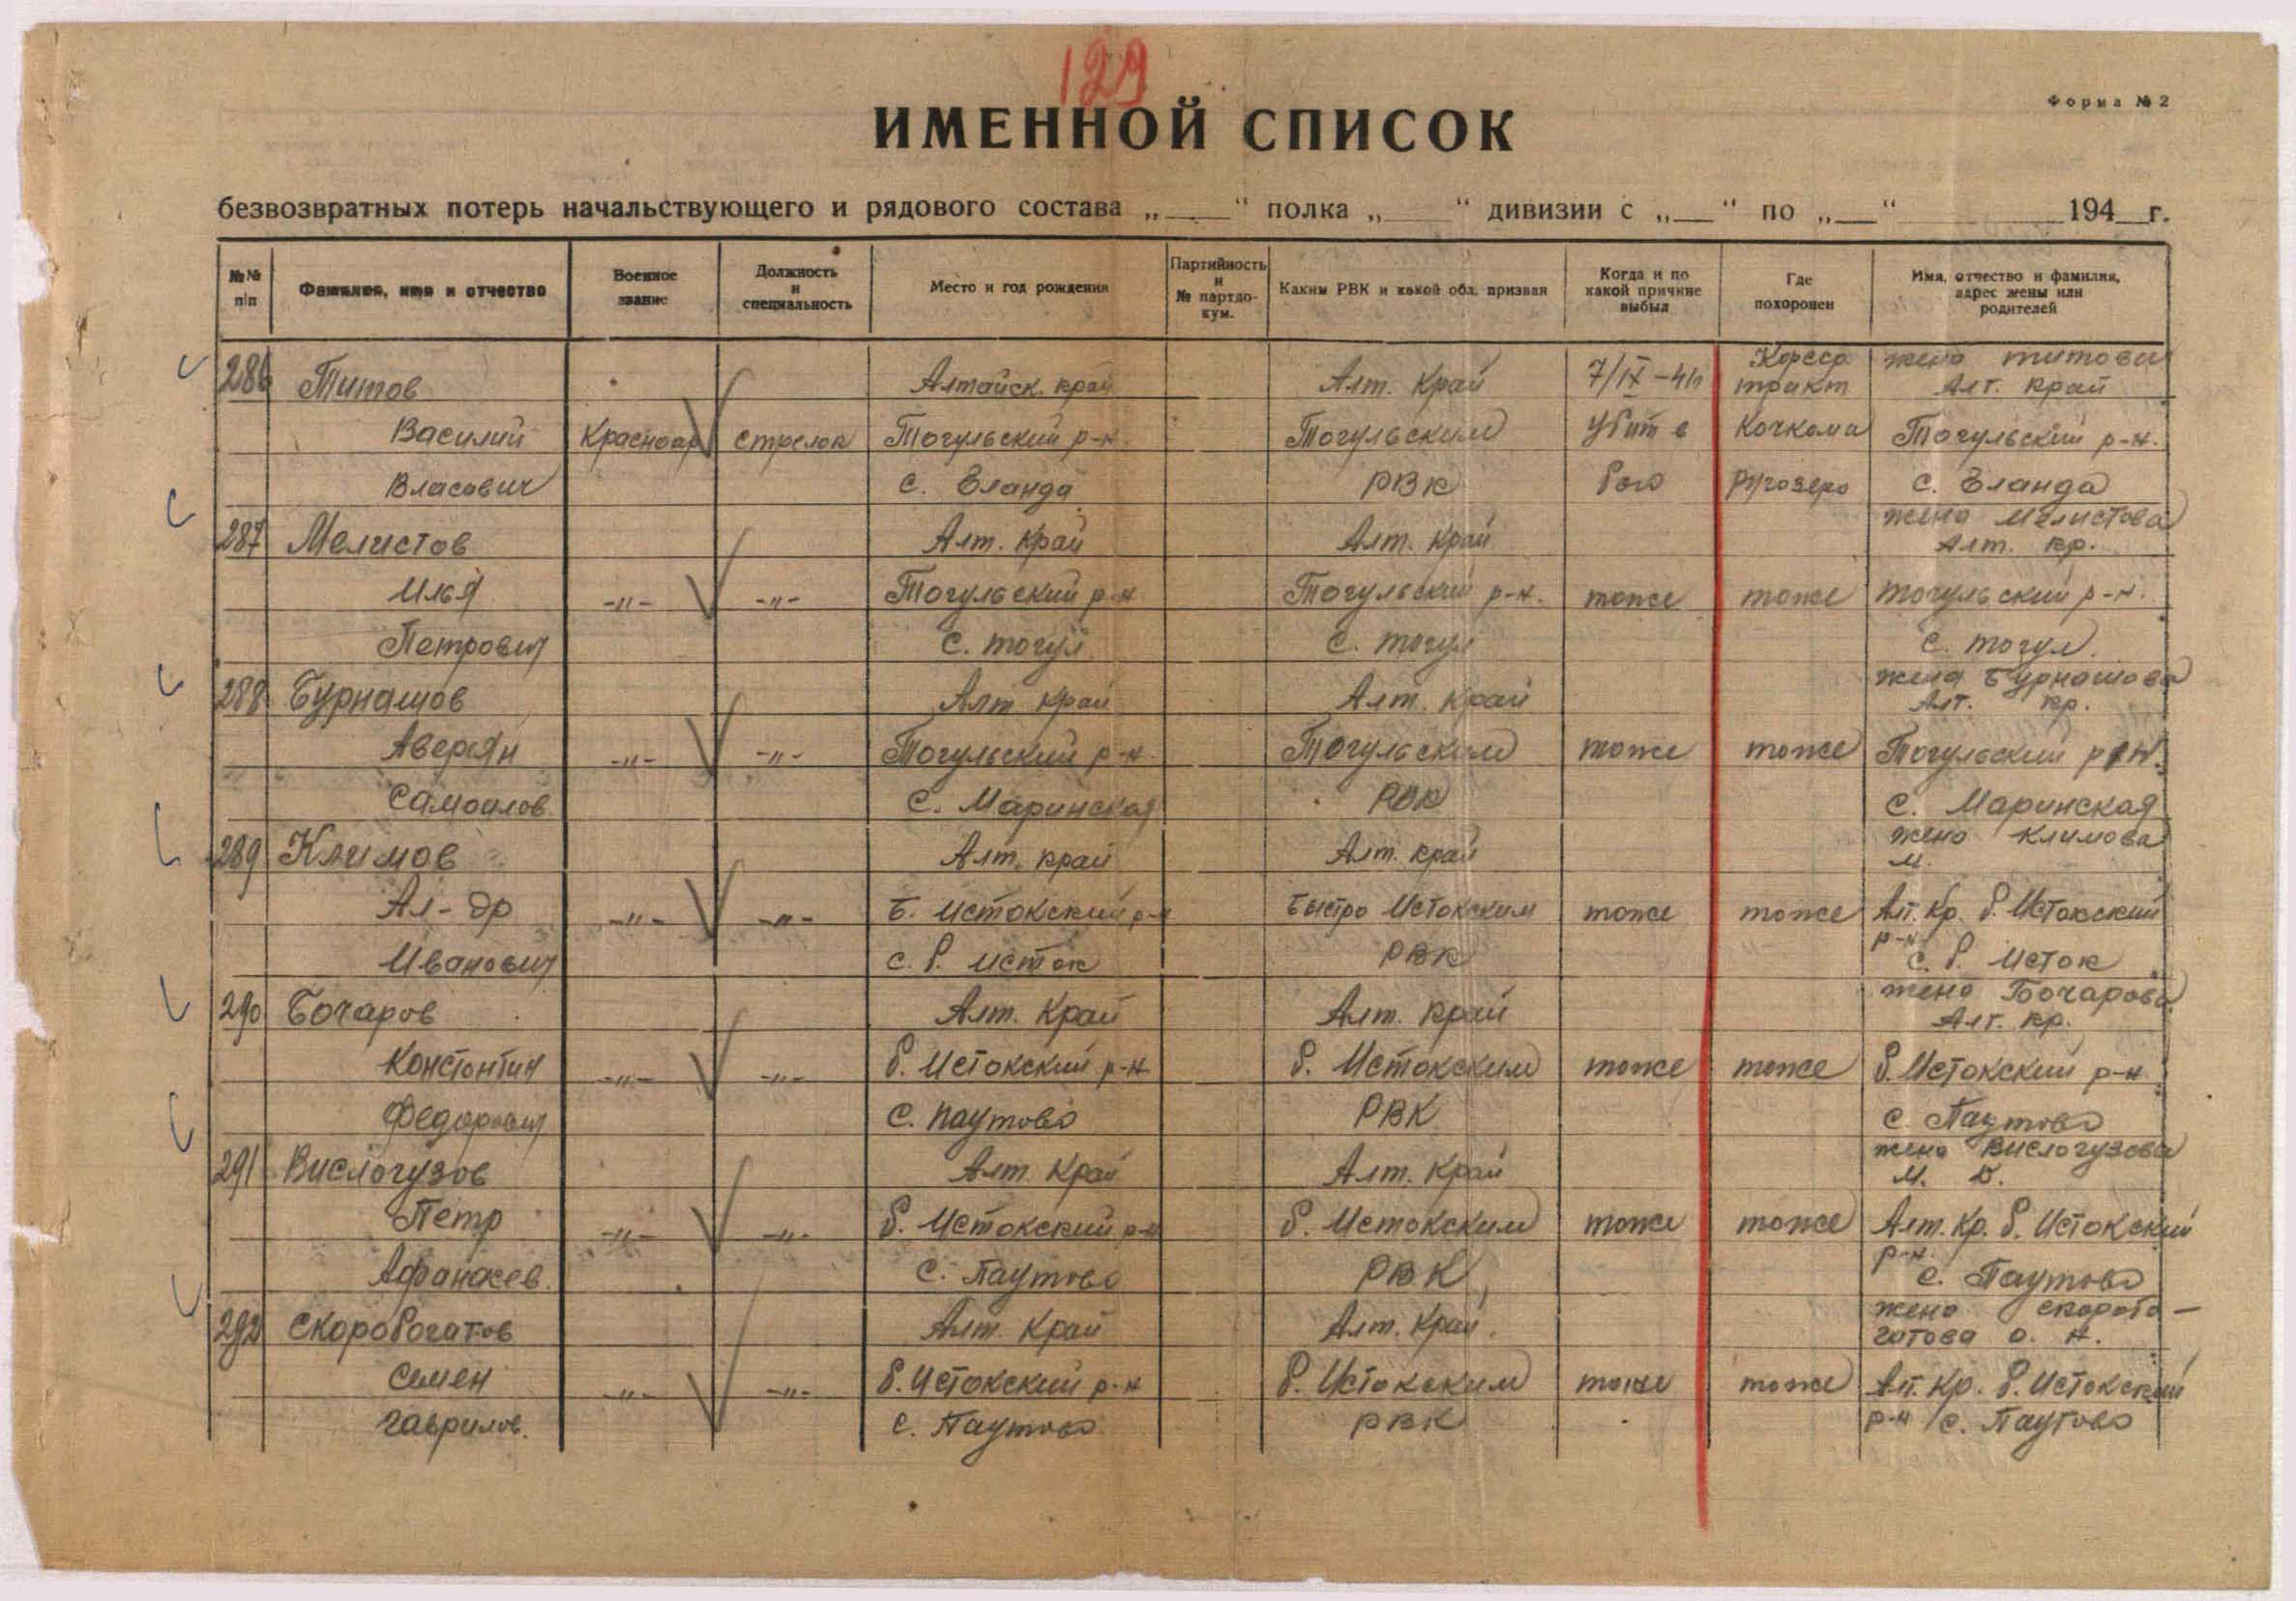 129
Форма № 2
ИМЕННОЙ СПИСОК
безвозвратных потерь начальствующего и рядового состава „____“ полка „____“ дивизии с „__“ по „__“ 194__г.
№№ п/п Фамилия, имя и отчество Военное звание Должность и специальность Место и год рождения Партийность и № партдокум. Каким РВК и какой обл. призван Когда и по какой причине выбыл Где похоронен Имя, отчество и фамилия, адрес жены или родителей
Кфсср жена Титова
286 Титов Алтайск. край Алт. Край 7/IX-41 тракт Алт. край
Василий Красноар стрелок Тогульский р-н. Тогульским убит в Кочкома Тогульский р-н.
Власович с. Еланда РВК бою Ругозеро с. Еланда
жена Мелистова
287 Мелистов Алт. край Алт. край Алт. кр.
Илья -"- -"- Тогульский р-н Тогульский р-н. тоже тоже Тогульский р-н.
Петрович с. Тогул С. Тогул с. Тогул.
жена Бурнашова
288 Бурнашов Алт край Алт. край Алт. кр.
Аверян -"- -"- Тогульский р-н. Тогульским тоже тоже Тогульский р-н.
Самоилов с. Маринская РВК с. Маринская
жена Климова
289 Климов Алт. край Алт. край М.
Ал-др -"- -"- Б. Истокский р-н Быстро Истокским тоже тоже Алт. Кр. б. Истокский
р-н
Иванович с. б. Исток РВК с. б. Исток
жена Бочарова
290 Бочаров Алт. Край Алт. край Алт. кр.
Констонтин -"- -"- б. Истокский р-н б. Истокским тоже тоже б. Истокский р-н.
Федорович с. Паутово РВК с. Паутово
жена Вислогузова
291 Вислогузов Алт. Край Алт. Край М. Д.
Петр -"- -"- б. Истокский р-н б. Истокским тоже тоже Алт. Кр. б. Истокский
р-н.
Афанасев. с. Паутово РВК с. Паутово
жена Скоробо-
292 Скоробогатов Алт. Край Алт. Край. гатова О. Н.
Семен -"- -"- б. Истокский р-н б. Истокским тоже тоже Алт. Кр. б. Истокский
Гаврилов. с. Паутово РВК р-н с. Паутово